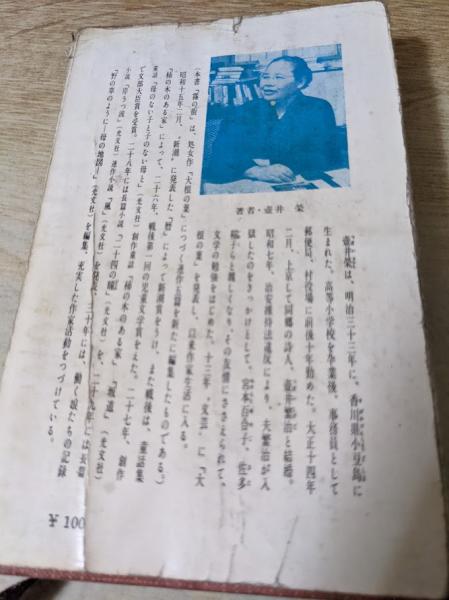 著者・壷井 栄
壷井栄は、明治三十三年に、香川県小豆島に
生まれた。高等小学校を卒業後、事務員として
郵便局、村役場に前後十年勤めた。大正十四年
二月、上京して同郷の詩人、壷井繁治と結婚。
昭和七年、治安維持法違反により、夫繁治が入
獄したのをきっかけとして、宮本百合子、佐多
稲子らと親しくなり、その友情にささえられて、
文学の勉強をはじめた。十三年、"文芸"に『大
根の葉』を発表し、以来作家生活に入る。
(本書『霧の街』は、処女作『大根の葉』につぐ連作五篇を新たに編集したものである。)
昭和十五年二月、"新潮"に発表した『暦』によって新潮賞をうけ、また戦後は、童話集
『柿の木のある家』によって、二十六年、戦後第一回の児童文学賞をえた。二十七年、創作
童話『母のない子と子のない母と』(光文社)創作童話『柿の木のある家』、『坂道』(光文社)
で文部大臣賞を受賞。二十八年には長篇小説『二十四の瞳』(光文社)を、二十九年には長篇
小説『岸うつ波』(光文社)連作小説『風』(光文社)を発表。三十年には、働く娘たちの記録
『野の草のように―母の地図―』(光文社)を編集、充実した作家活動をつづけている。
¥ 100